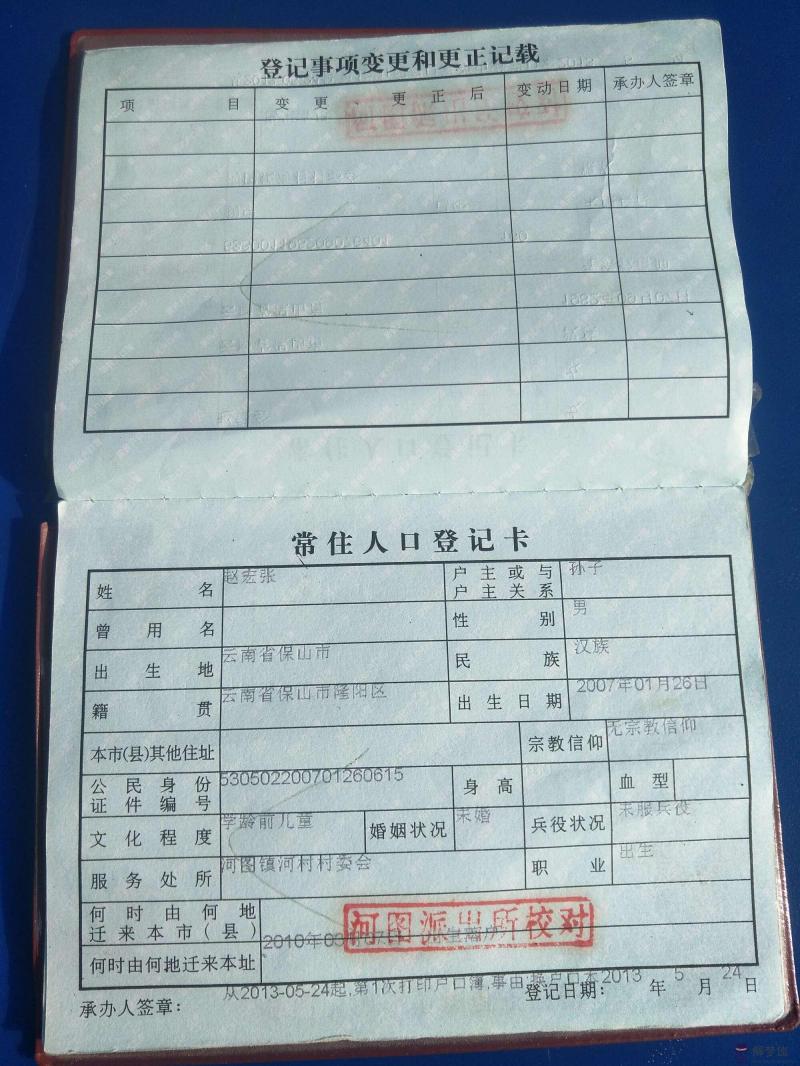 登记事项变更和更正记载
项目 变更、更正后 变动日期 承办人签章
河图派出所校对
常住人口登记卡
姓名 赵宏张 户主或与户主关系 孙子
曾用名 性别 男
出生地 云南省保山市 民族 汉族
籍贯 云南省保山市隆阳区 出生日期 2007年01月26日
本市(县)其他住址 宗教信仰 无宗教信仰
公民身份证件编号 530502200701260615 身高 血型
文化程度 学龄前儿童 婚姻状况 未婚 兵役状况 未服兵役
服务处所 河图镇河村村委会 职业 出生
何时由何地迁来本市(县)
河图派出所校对
何时由何地迁来本址 2010年
从2013-05-24起,第1次打印户口簿,事由:换户口本
承办人签章: 登记日期: 2013年5月24日